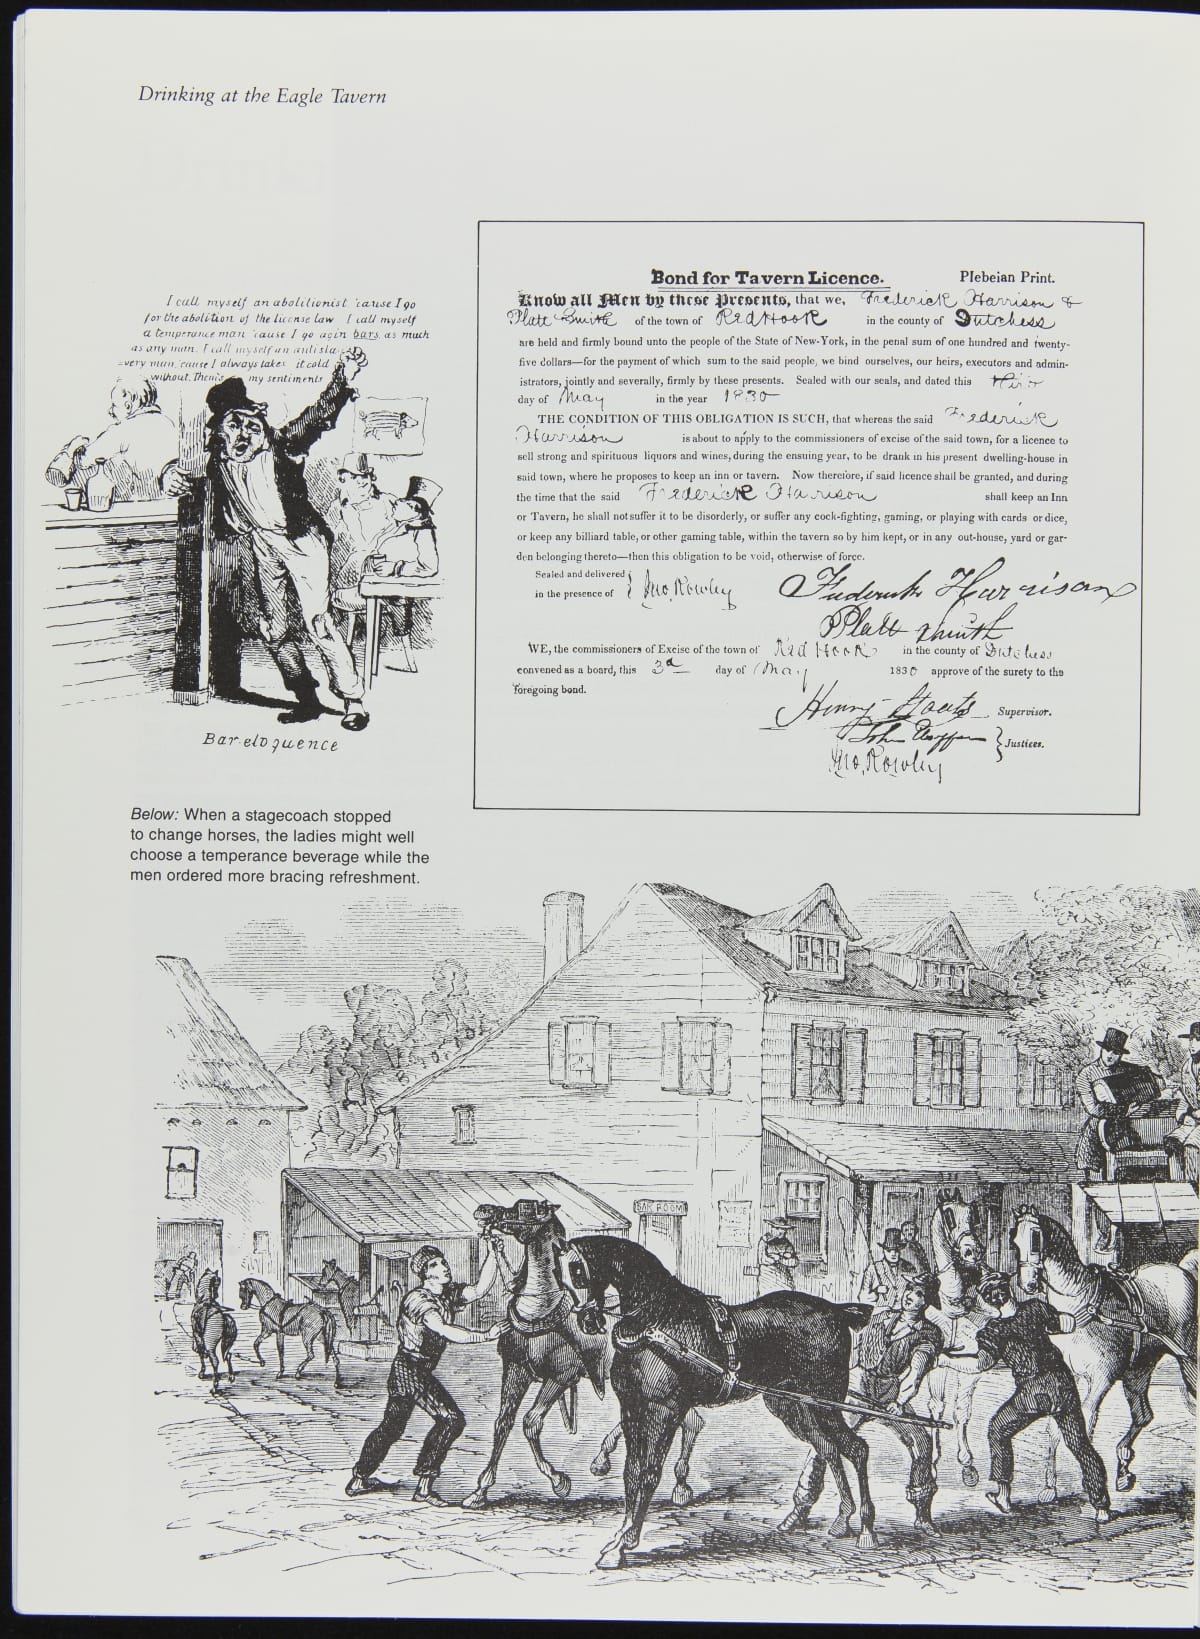 Drinking at the Eagle Tavern
I call myself an abolitionist 'cause I go
for the abolition of the license law I call myself
a temperance man 'cause I go agin bars as much
as any man. I call myself an anti sla-
=very man, cause I always takes it cold
without. Them's my sentiments
Bar-eloquence
Bond for Tavern Licence. Plebeian Print.
Know all Men by these Presents, that we, Frederick Harrison &
Platt Smith of the town of Red Hook in the county of Dutchess
are held and firmly bound unto the people of the State of New-York, in the penal sum of one hundred and twenty-
five dollars—for the payment of which sum to the said people, we bind ourselves, our heirs, executors and admin-
istrators, jointly and severally, firmly by these presents. Sealed with our seals, and dated this
day of May in the year 1830
THE CONDITION OF THIS OBLIGATION IS SUCH, that whereas the said Frederick
Harrison is about to apply to the commissioners of excise of the said town, for a licence to
sell strong and spirituous liquors and wines, during the ensuing year, to be drank in his present dwelling-house in
said town, where he proposes to keep an inn or tavern. Now therefore, if said licence shall be granted, and during
the time that the said Frederick Harrison shall keep an Inn
or Tavern, he shall not suffer it to be disorderly, or suffer any cock-fighting, gaming, or playing with cards or dice,
or keep any billiard table, or other gaming table, within the tavern so by him kept, or in any out-house, yard or gar-
den belonging thereto—then this obligation to be void, otherwise of force.
Sealed and delivered
in the presence of } Jno. Rowley Frederick Harrison
Platt Smith
WE, the commissioners of Excise of the town of Red Hook in the county of Dutchess
convened as a board, this 3d day of May 1830 approve of the surety to the
foregoing bond.
Henry Staats Supervisor.
John } Justices.
Jno. Rowley
Below: When a stagecoach stopped
to change horses, the ladies might well
choose a temperance beverage while the
men ordered more bracing refreshment.
BAR ROOM